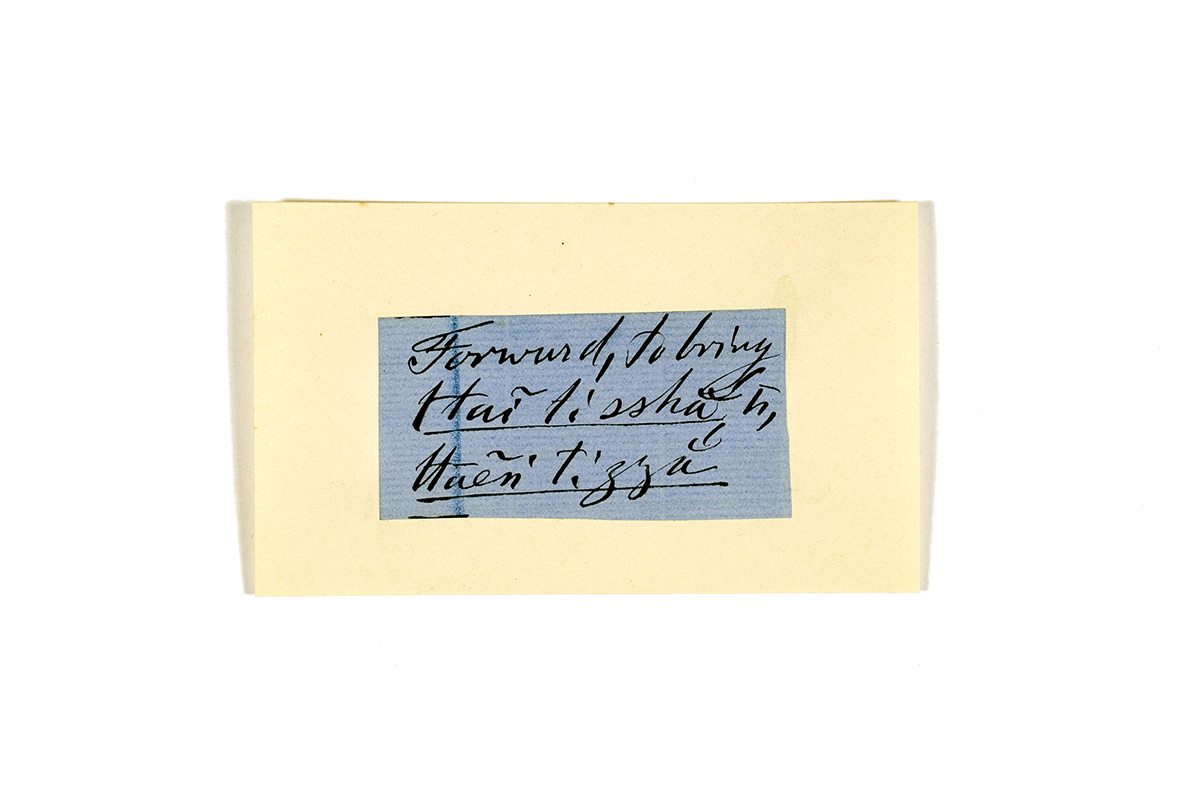 Forward, to bring
Haĩ ti sshă ti,
Haẽri tizză